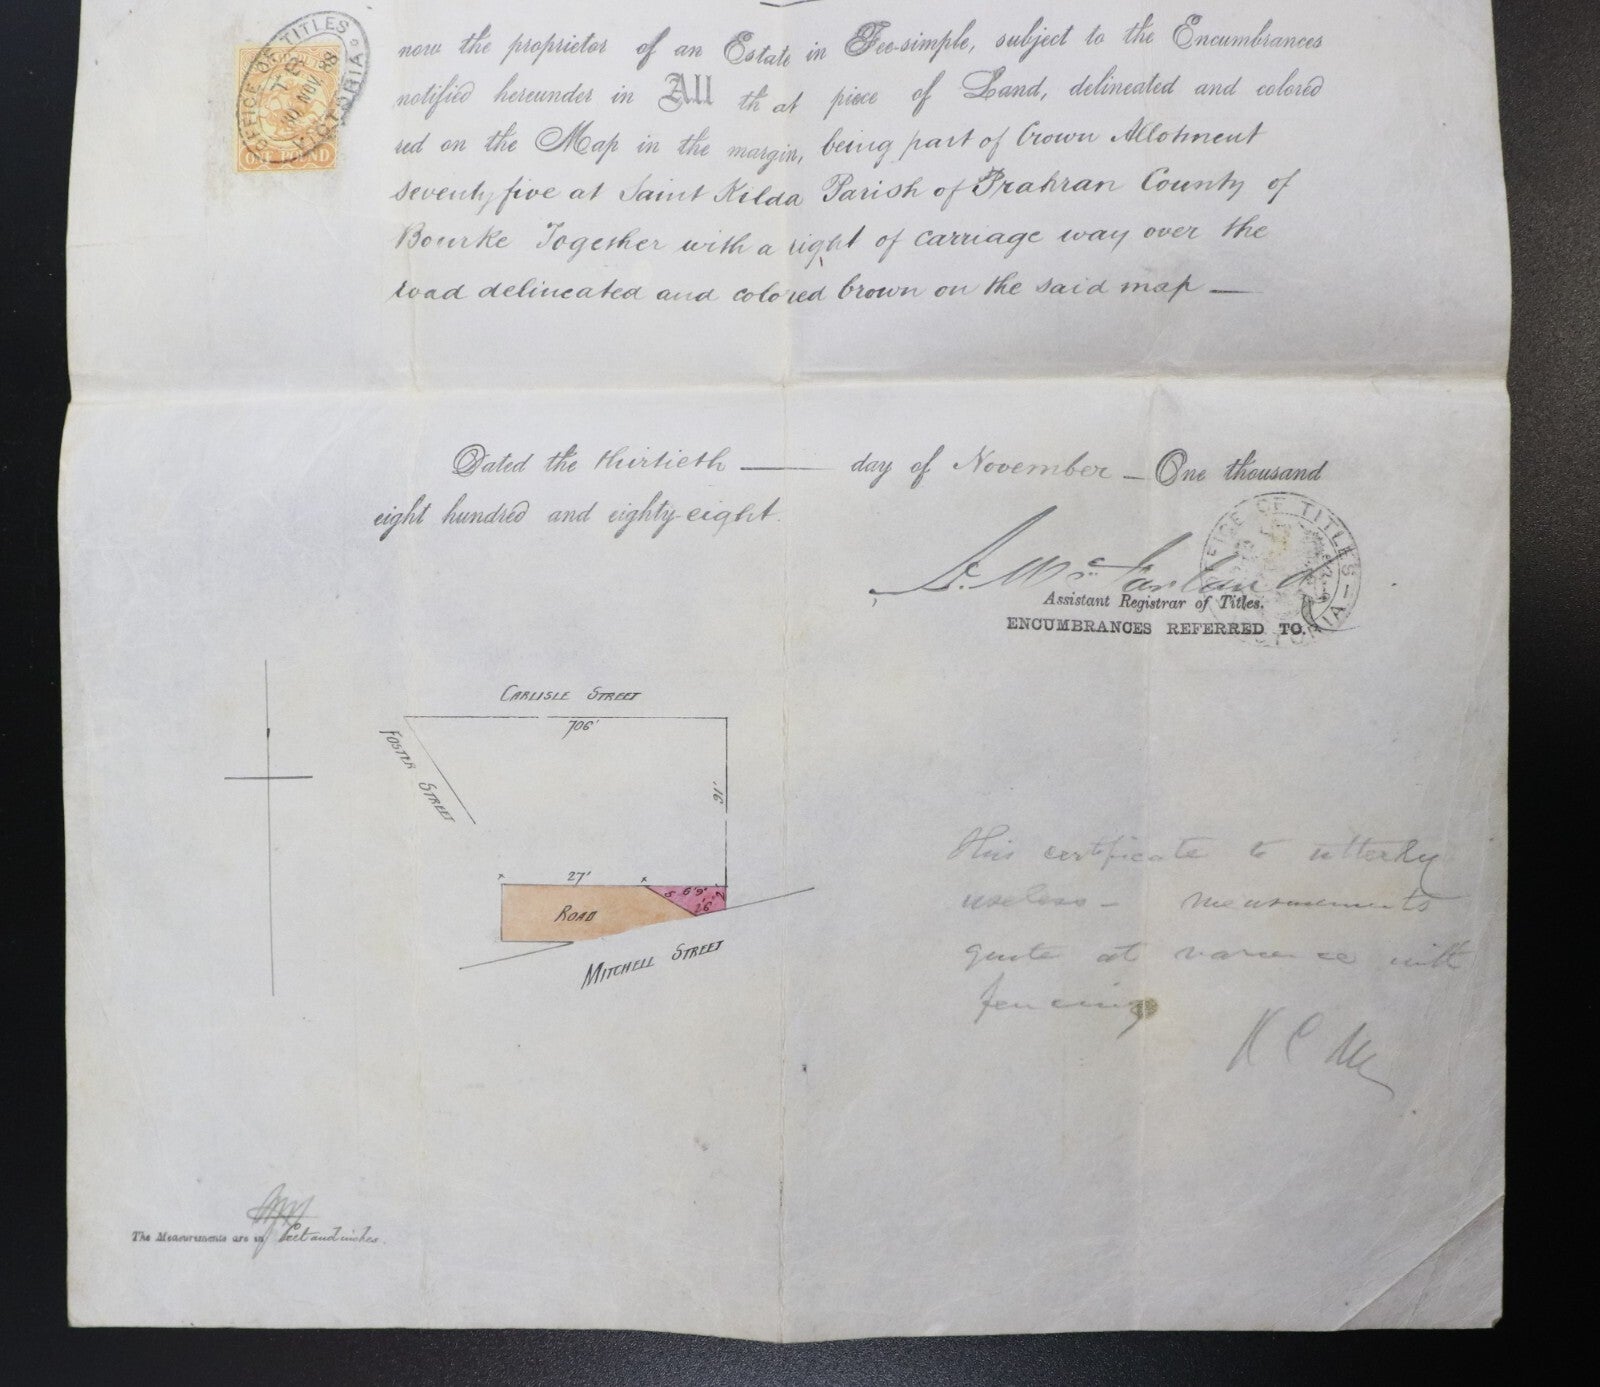 OFFICE OF TITLES
VICTORIA
30 NOV. 88
ONE POUND
now the proprietor of an Estate in Fee-simple, subject to the Encumbrances
notified hereunder in All that piece of Land, delineated and colored
red on the Map in the margin, being part of Crown Allotment
seventy five at Saint Kilda Parish of Prahran County of
Bourke Together with a right of carriage way over the
road delineated and colored brown on the said map —
Dated the thirtieth — day of November — One thousand
eight hundred and eighty-eight.
OFFICE OF TITLES
Assistant Registrar of Titles.
ENCUMBRANCES REFERRED TO.
CARLISLE STREET
706'
FOSTER STREET
91'
27'
6'9"
5
7
7'6"
ROAD
MITCHELL STREET
this certificate is utterly
useless — measurements
quite at variance with
fencing
The Measurements are in feet and inches.